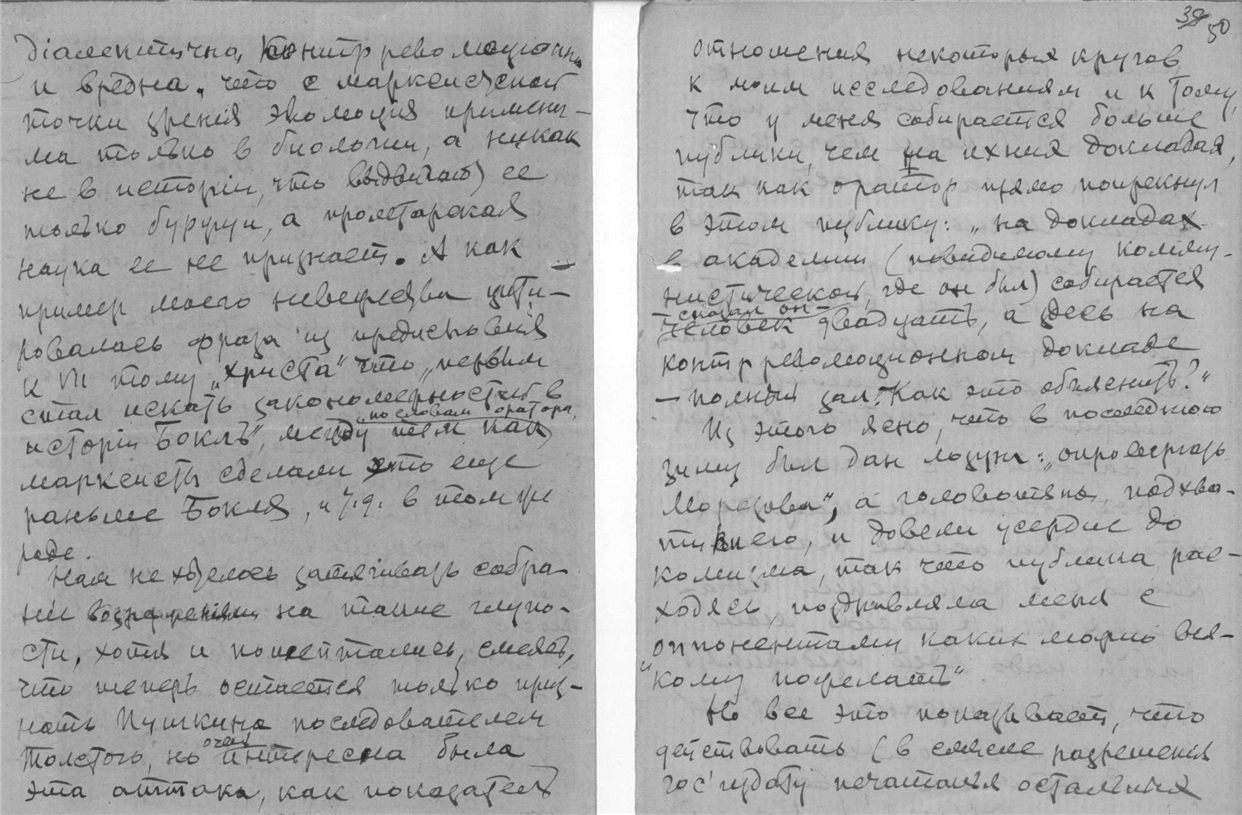 діалектична, контрреволюціонна
и вредна, что с марксистской
точки зренія эволюція примени-
ма только в биологии, а никак
не в исторіи, что выдвигают ее
только буржуи, а пролетарская
наука ее не признает. А как
пример моего невежства цити-
ровалась фраза из предисловія
к VII тому „Христа" что „первым
стал искать закономерностей в
исторіи Бокль", между тем как,
по словам оратора,
марксисты сделали это еще
раньше Бокля, и т.д. в том же
роде.
Нам не хотелось затягивать собра-
ніе возраженіями на такие глупо-
сти, хотя и пошептались, смеясь,
что теперь остается только приз-
нать Пушкина последователем
Толстого, но очень интересна была
эта аттака, как показатель
39 50
отношения некоторых кругов
к моим исследованиям и к тому,
что у меня собирается больше
публики, чем на ихния доклады,
так как оратор прямо попрекнул
в этом публику: „на докладах
в академии (повидимому комму-
нистической, где он был) собирается
— сказал он —
человек двадцать, а здесь на
контрреволюционном докладе
— полный зал. Как это объяснить?"
Из этого ясно, что в последнюю
зиму был дан лозунг: „опровергать
Морозова", а головотяпы, подхва-
тив его, и довели усердие до
комизма, так что публика рас-
ходясь поздравляла меня с
оппонентами каких можно вся-
„кому пожелать".
Но все это показывает, что
действовать (в смысле разрешения
Гос'издату печатания остальных